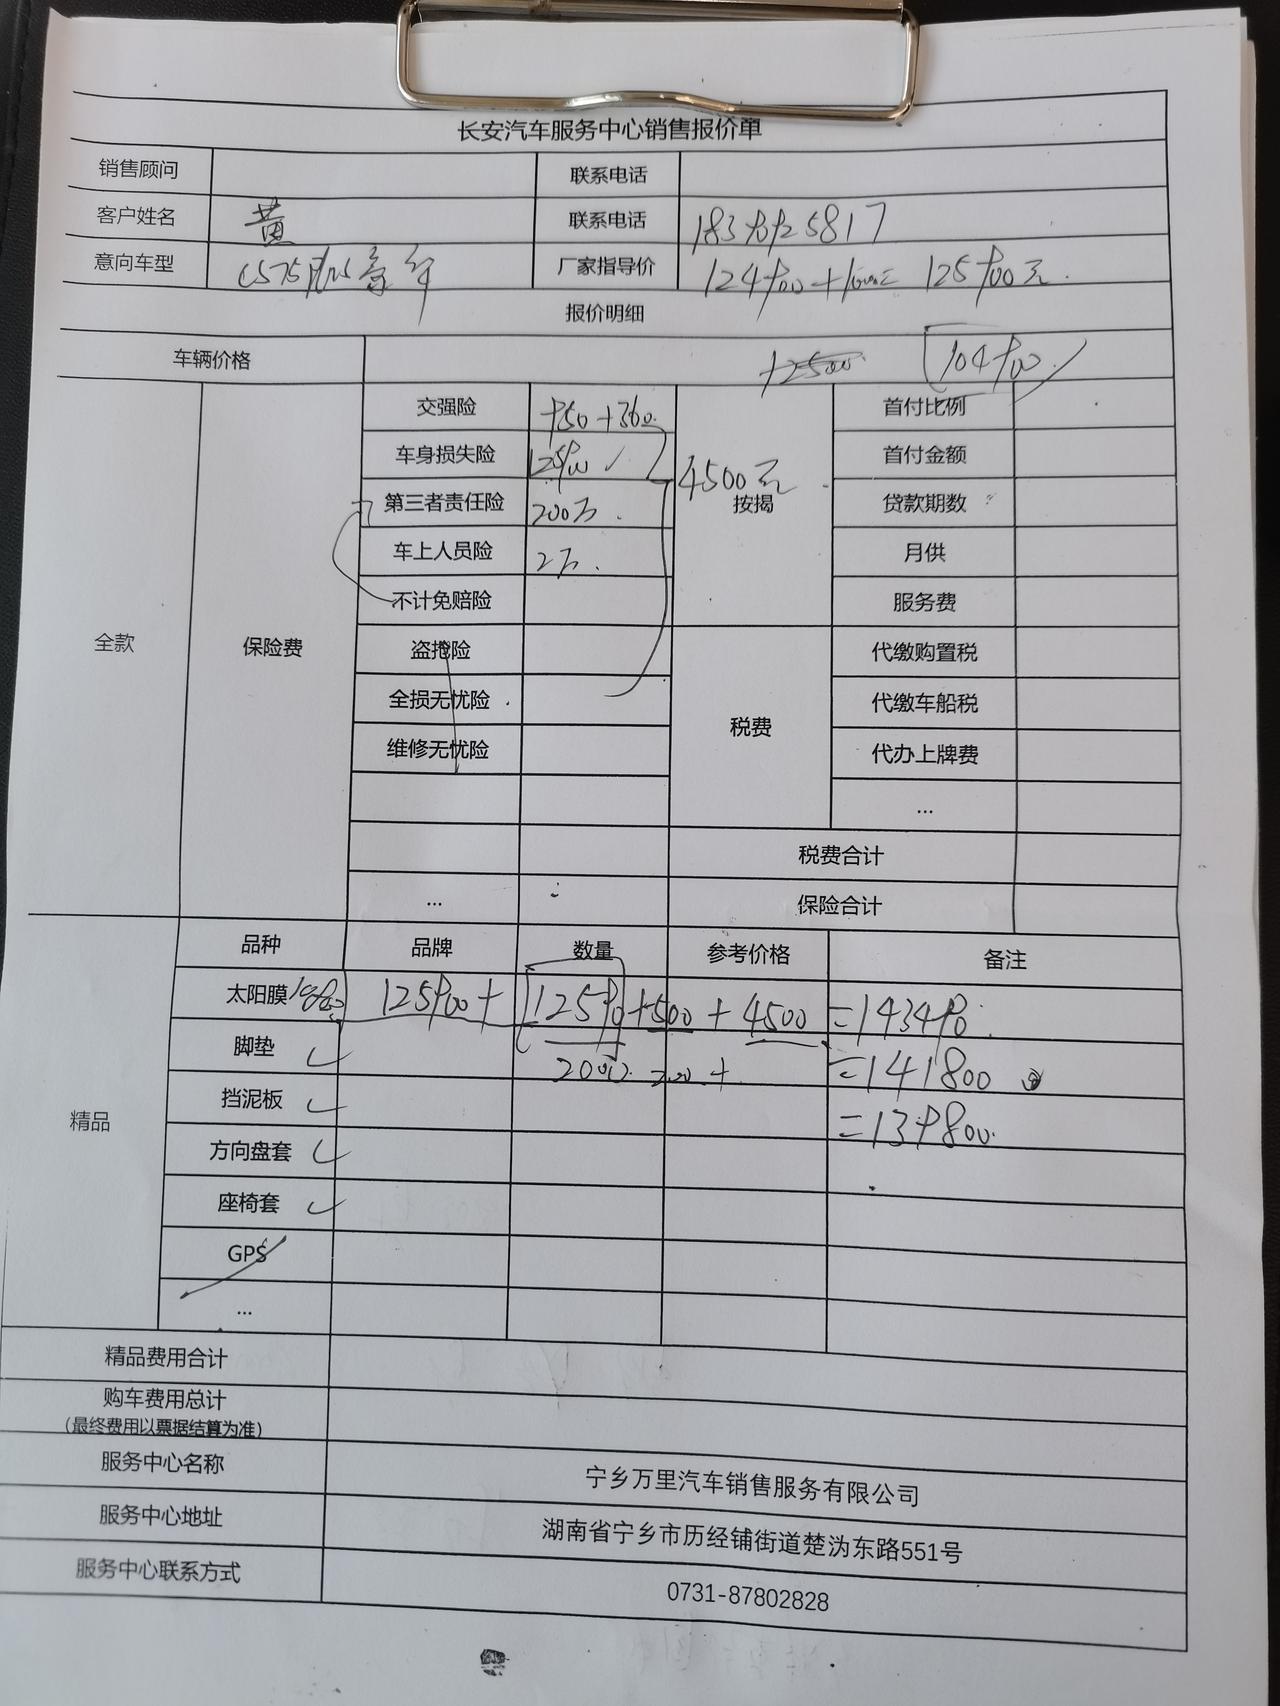 长安汽车服务中心销售报价单
销售顾问 联系电话
客户姓名 黄 联系电话
意向车型 CS75 厂家指导价 124900+1000= 125900元.
报价明细
车辆价格 +2500 104900
全款 保险费 交强险 950+360 4500元 按揭 首付比例
车身损失险 125900 首付金额
第三者责任险 200万. 贷款期数
车上人员险 2万. 月供
不计免赔险 服务费
盗抢险 税费 代缴购置税
全损无忧险 代缴车船税
维修无忧险 代办上牌费
...
税费合计
... 保险合计
精品 品种 品牌 数量 参考价格 备注
太阳膜 125900+ 12590 +500 + 4500 =143490.
脚垫 2000. + =141800
挡泥板 =139800.
方向盘套
座椅套
GPS
...
精品费用合计
购车费用总计
(最终费用以票据结算为准)
服务中心名称 宁乡万里汽车销售服务有限公司
服务中心地址 湖南省宁乡市历经铺街道楚沩东路551号
服务中心联系方式 0731-87802828